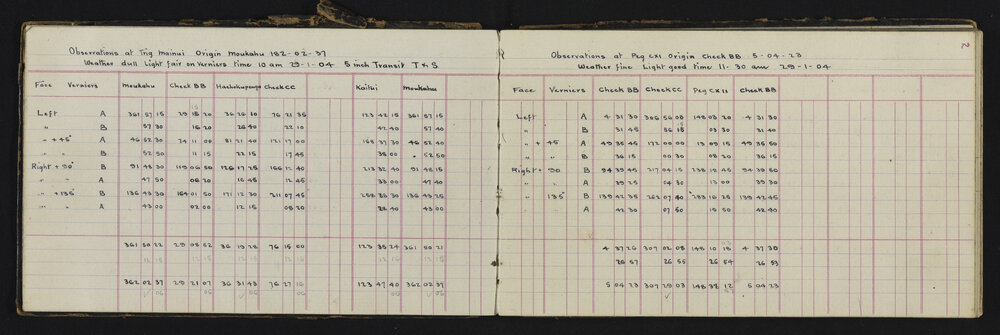 Observations at Trig Mainui Origin Moukahu 182-02-37
Weather dull Light fair on Verniers time 10 am 29-1-04 5 inch Transit T & S
Face Verniers Moukahu Check BB Check CC Kaitui Moukahu
Left A 361 57 15 29 15 20 36 26 10 76 21 35 123 42 15 361 57 15
" B 57 30 16 20 26 40 22 10 42 40 57 40
" + 45° A 46 52 30 74 11 00 81 21 40 121 17 00 168 37 30 46 52 40
" " B 52 50 11 15 22 15 17 45 38 00 52 50
Right + 90° B 91 48 30 126 17 25 166 12 40 213 32 40 91 48 15
" " A 47 50 06 20 16 45 12 45 33 00 47 40
" + 135° B 136 43 30 164 01 50 171 12 30 211 07 45 258 28 30 136 43 25
" " A 43 00 02 00 12 15 08 20 28 40 43 00
361 50 22 29 08 52 36 19 28 76 15 00 123 35 24 361 50 21
362 02 37 29 21 07 36 31 43 76 27 16 123 47 40 362 02 37
2
Observations at Peg CXI Origin Check BB 5-04-23
Weather fine Light good time 11-30 am 29-1-04
Face Verniers Check BB Check CC Peg CX II Check BB
Left A 4 31 30 306 56 00 148 03 20 4 31 30
" B 31 45 56 15 03 30 31 40
" + 45 A 49 35 45 172 00 00 13 09 15 49 35 50
" " B 36 15 00 30 08 20 36 15
Right + 90 B 94 39 45 217 04 15 238 12 45 94 39 50
" " A 39 25 04 30 13 00 39 30
" 135° B 139 42 35 262 07 40 139 42 45
" " A 42 30 07 50 15 50 42 40
4 37 26 307 02 08 148 10 18 4 37 30
26 57 26 55 26 54 26 53
5 04 23 307 29 03 148 37 12 5 04 23